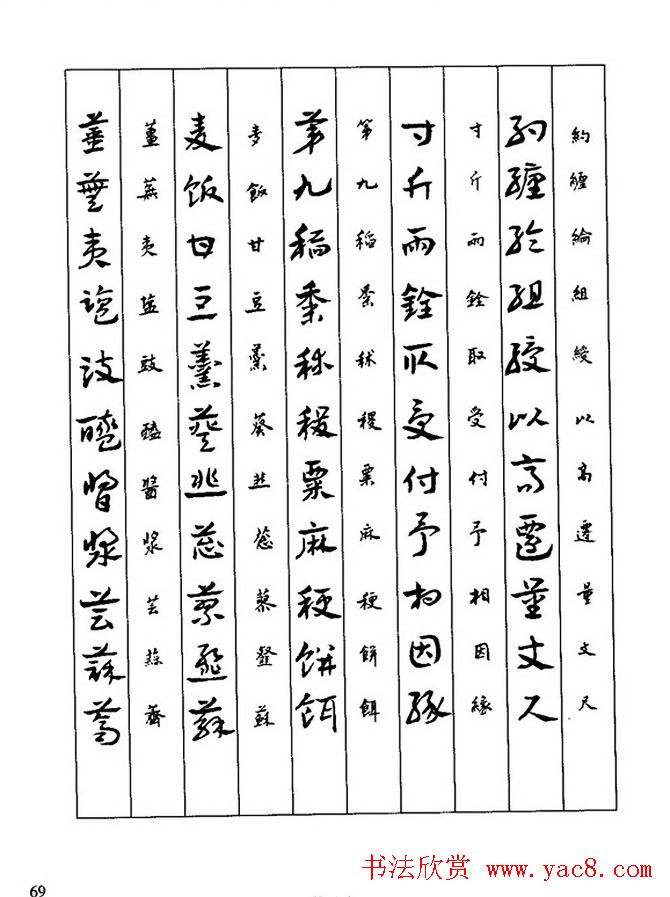 約纏綸組綬以高遷量丈尺
約纏綸組綬以高遷量丈尺
寸斤兩銓取受付予相因緣
寸斤兩銓取受付予相因緣
第九稻黍秫稷粟麻稉餅餌
第九稻黍秫稷粟麻稉餅餌
麥飯甘豆羹葵韭葱蓼蘇
麥飯甘豆羹葵韭葱蓼蘇
薑蕪夷塩豉醯醬漿芸蒜薺
薑蕪夷塩豉醯醬漿芸蒜薺
69
书法欣赏 www.yac8.com